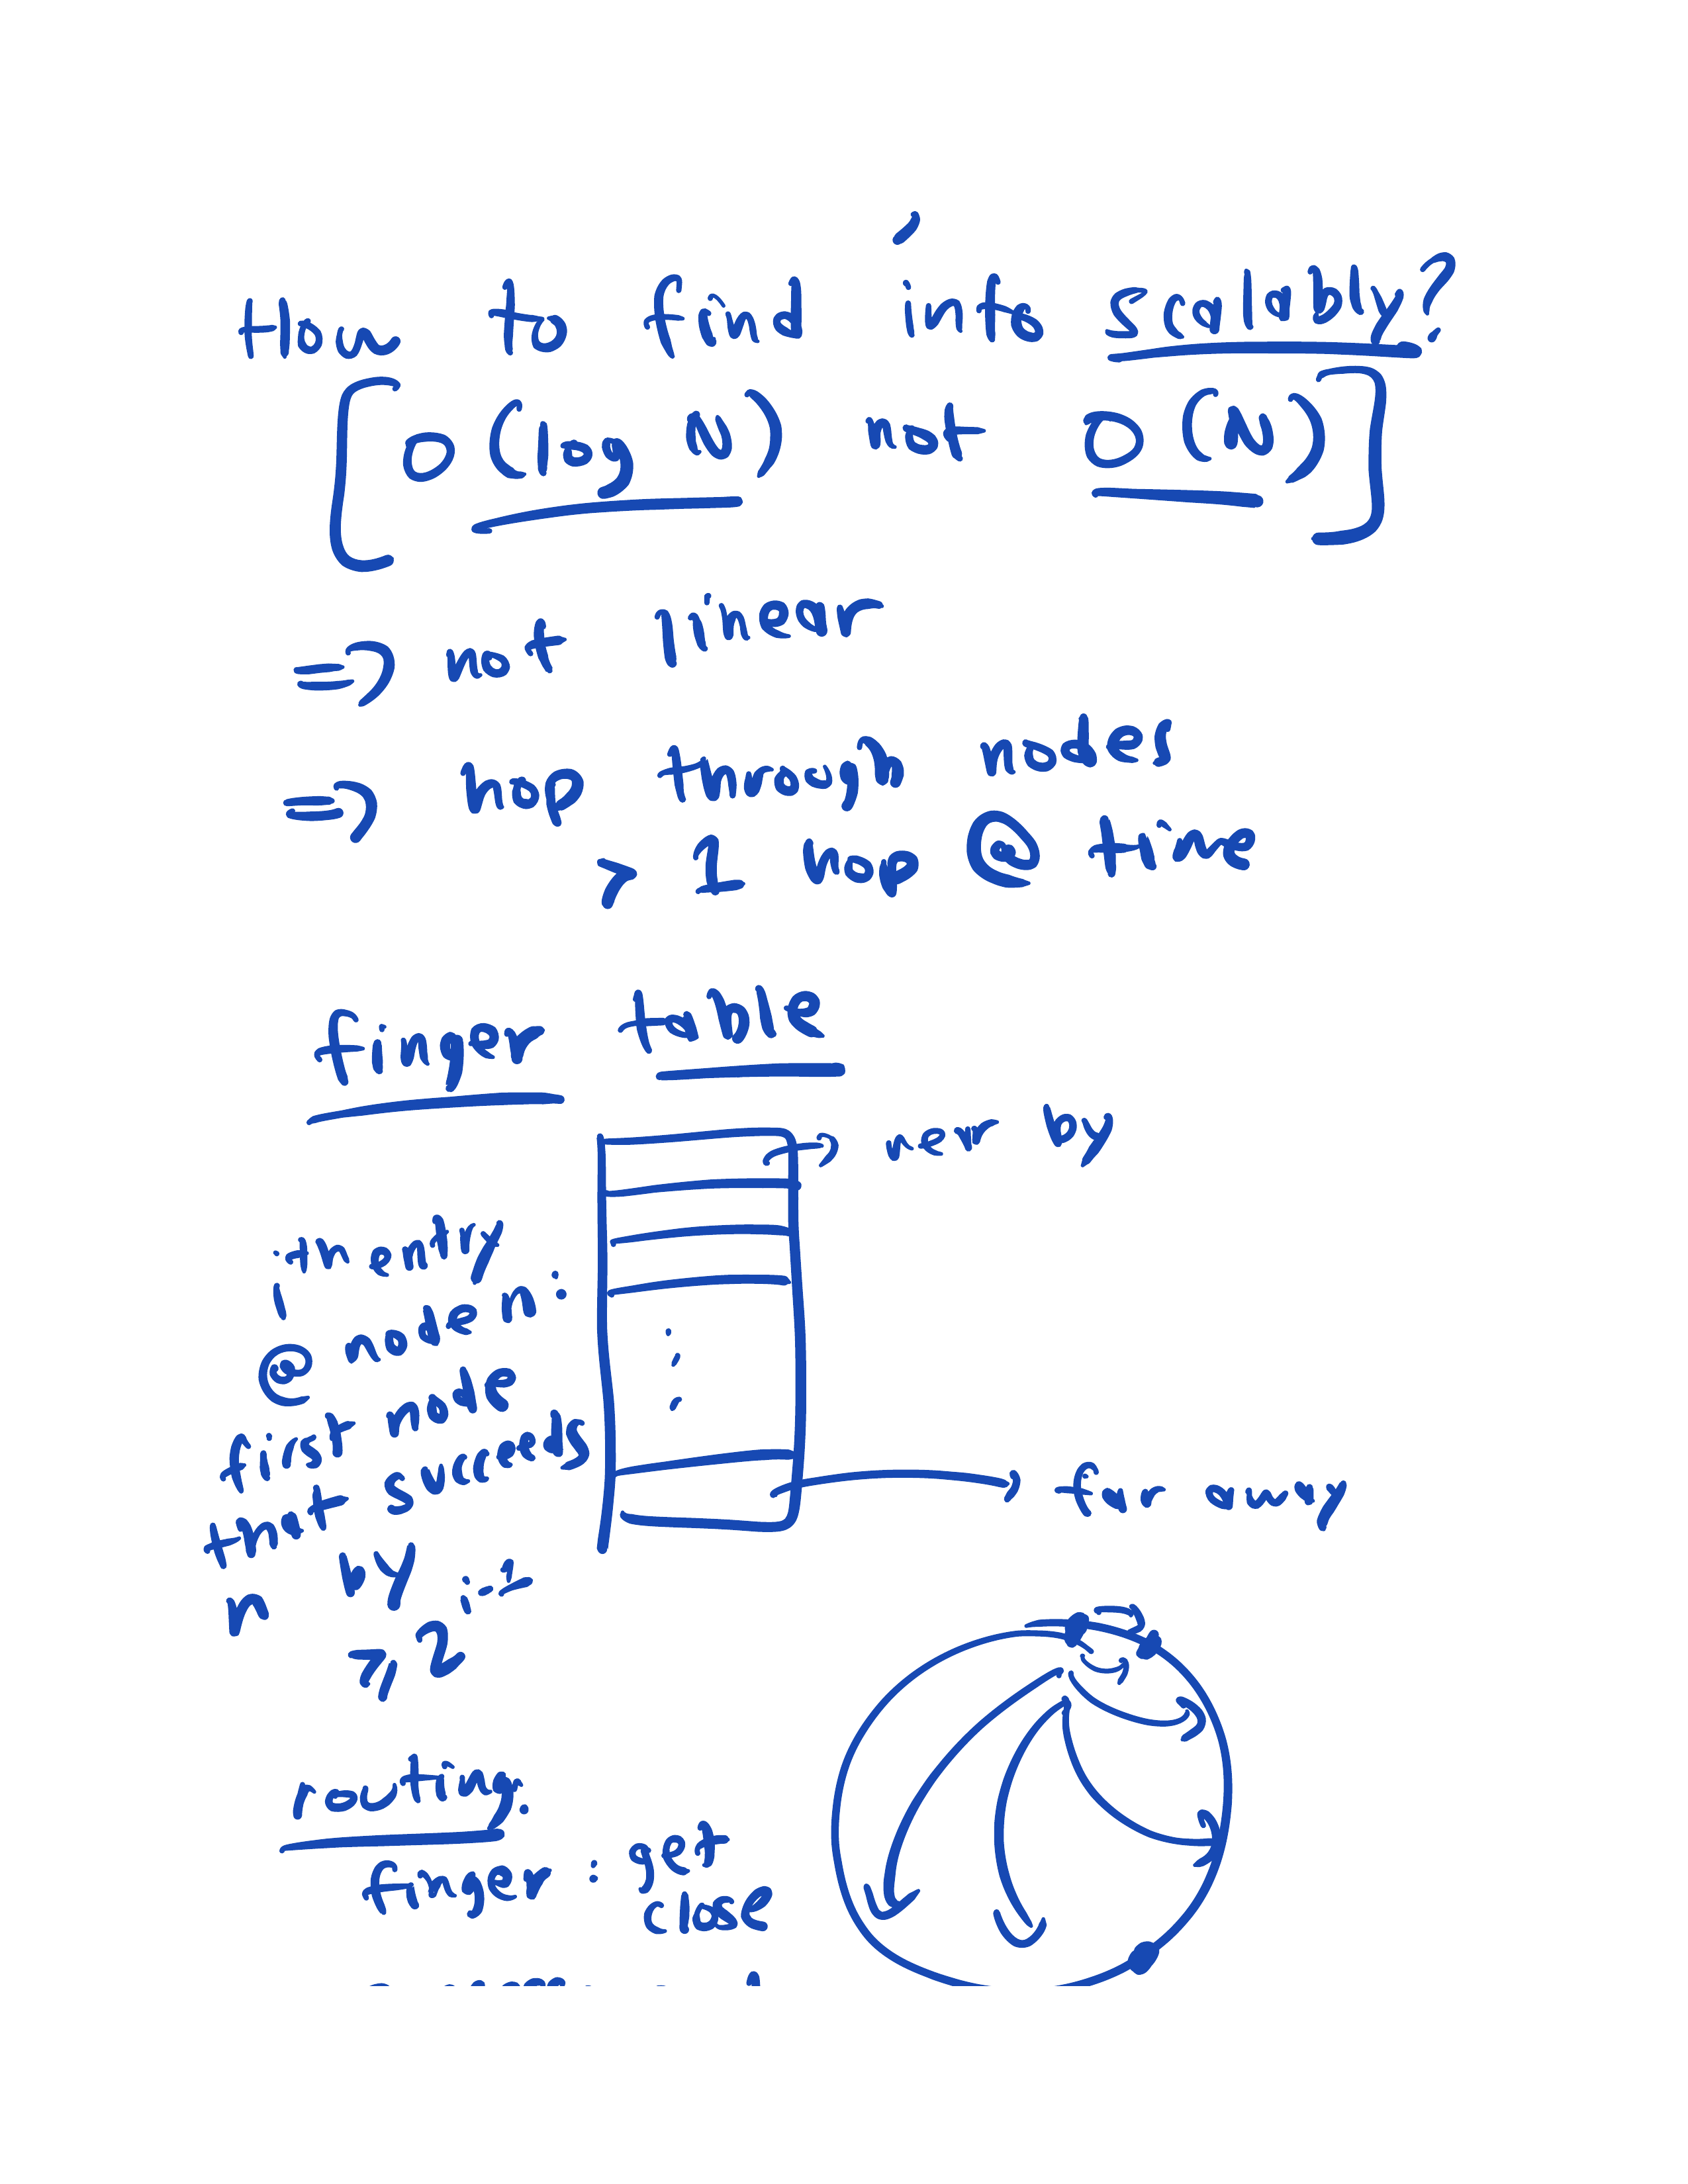 How to find info scalably?
[O(log N) not O(N)]
=> not linear
=> hop through nodes
> 1 hop @ time
finger table
near by
ith entry
@ node n:
first node
that succeeds
n by
≥ 2^{i-1}
far away
routing:
finger : get
close